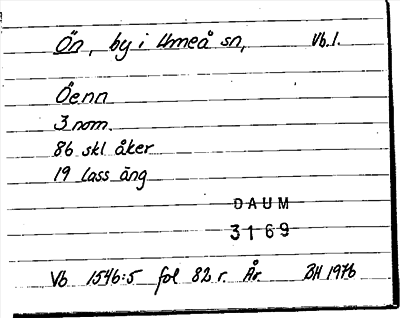 Ön, by i Umeå sn, Vb. l.
Öenn
3 nom.
86 skl åker
19 lass äng
DAUM
3169
Vb 1546:5 fol 82 r. År BH 1976